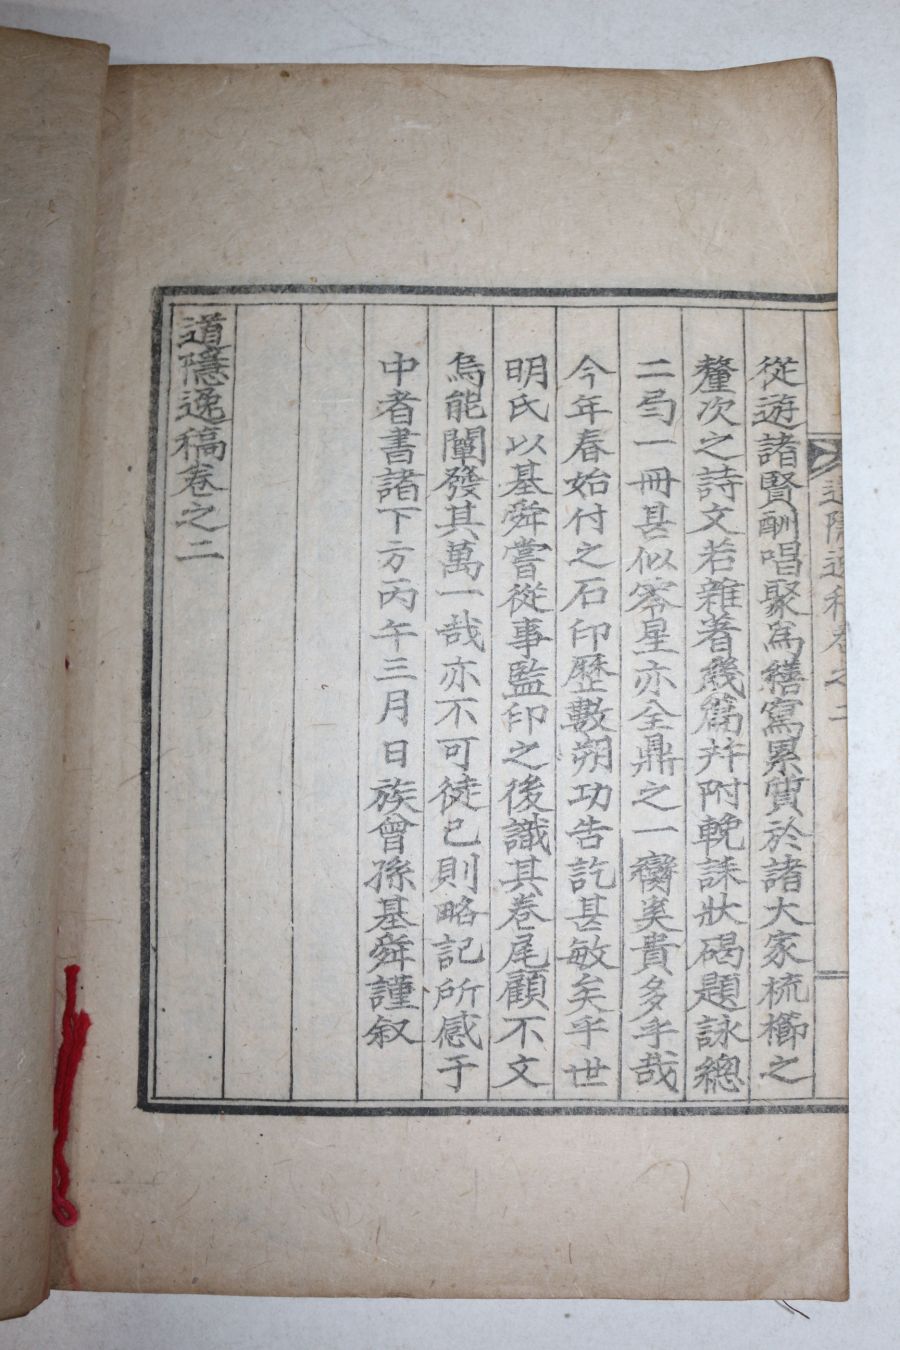 道隱逸稿卷之二
從遊諸賢酬唱聚爲繕寫累質於諸大家梳櫛之
釐次之詩文若雜著幾篇幷附輓誄狀碣題詠總
二弓一冊甚似零星亦全鼎之一臠矣貴多乎哉
今年春始付之石印歷數朔功告訖甚敏矣乎世
明氏以基舜嘗從事監印之後識其卷尾顧不文
烏能闡發其萬一哉亦不可徒已則略記所感于
中者書諸下方丙午三月日族曾孫基舜謹叙
道隱逸稿卷之二